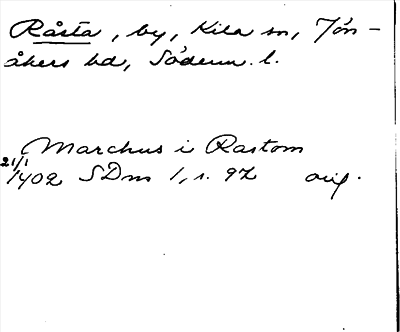 Råsta, by, Kila sn, Jön-
åkers hd, Söderm. l.
Marchus i Rastom
21/1
1402 SDm 1, s. 92 orig.